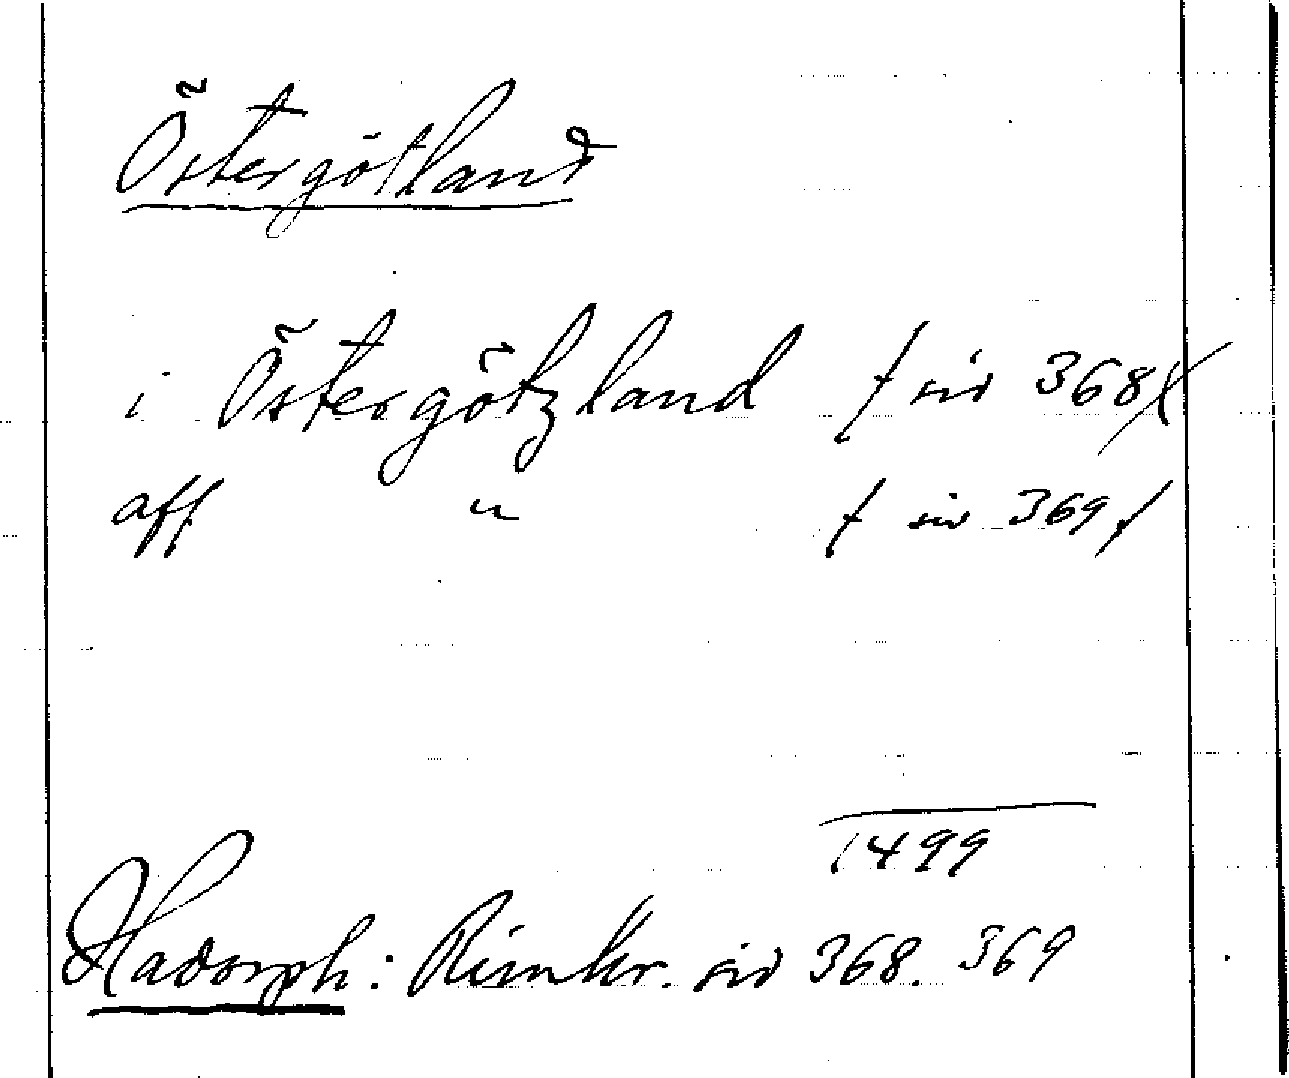 Östergötland
i Östergötzland / sid 368/
aff " / sid 369/
1499
Hadorph: Rimkr. sid 368. 369